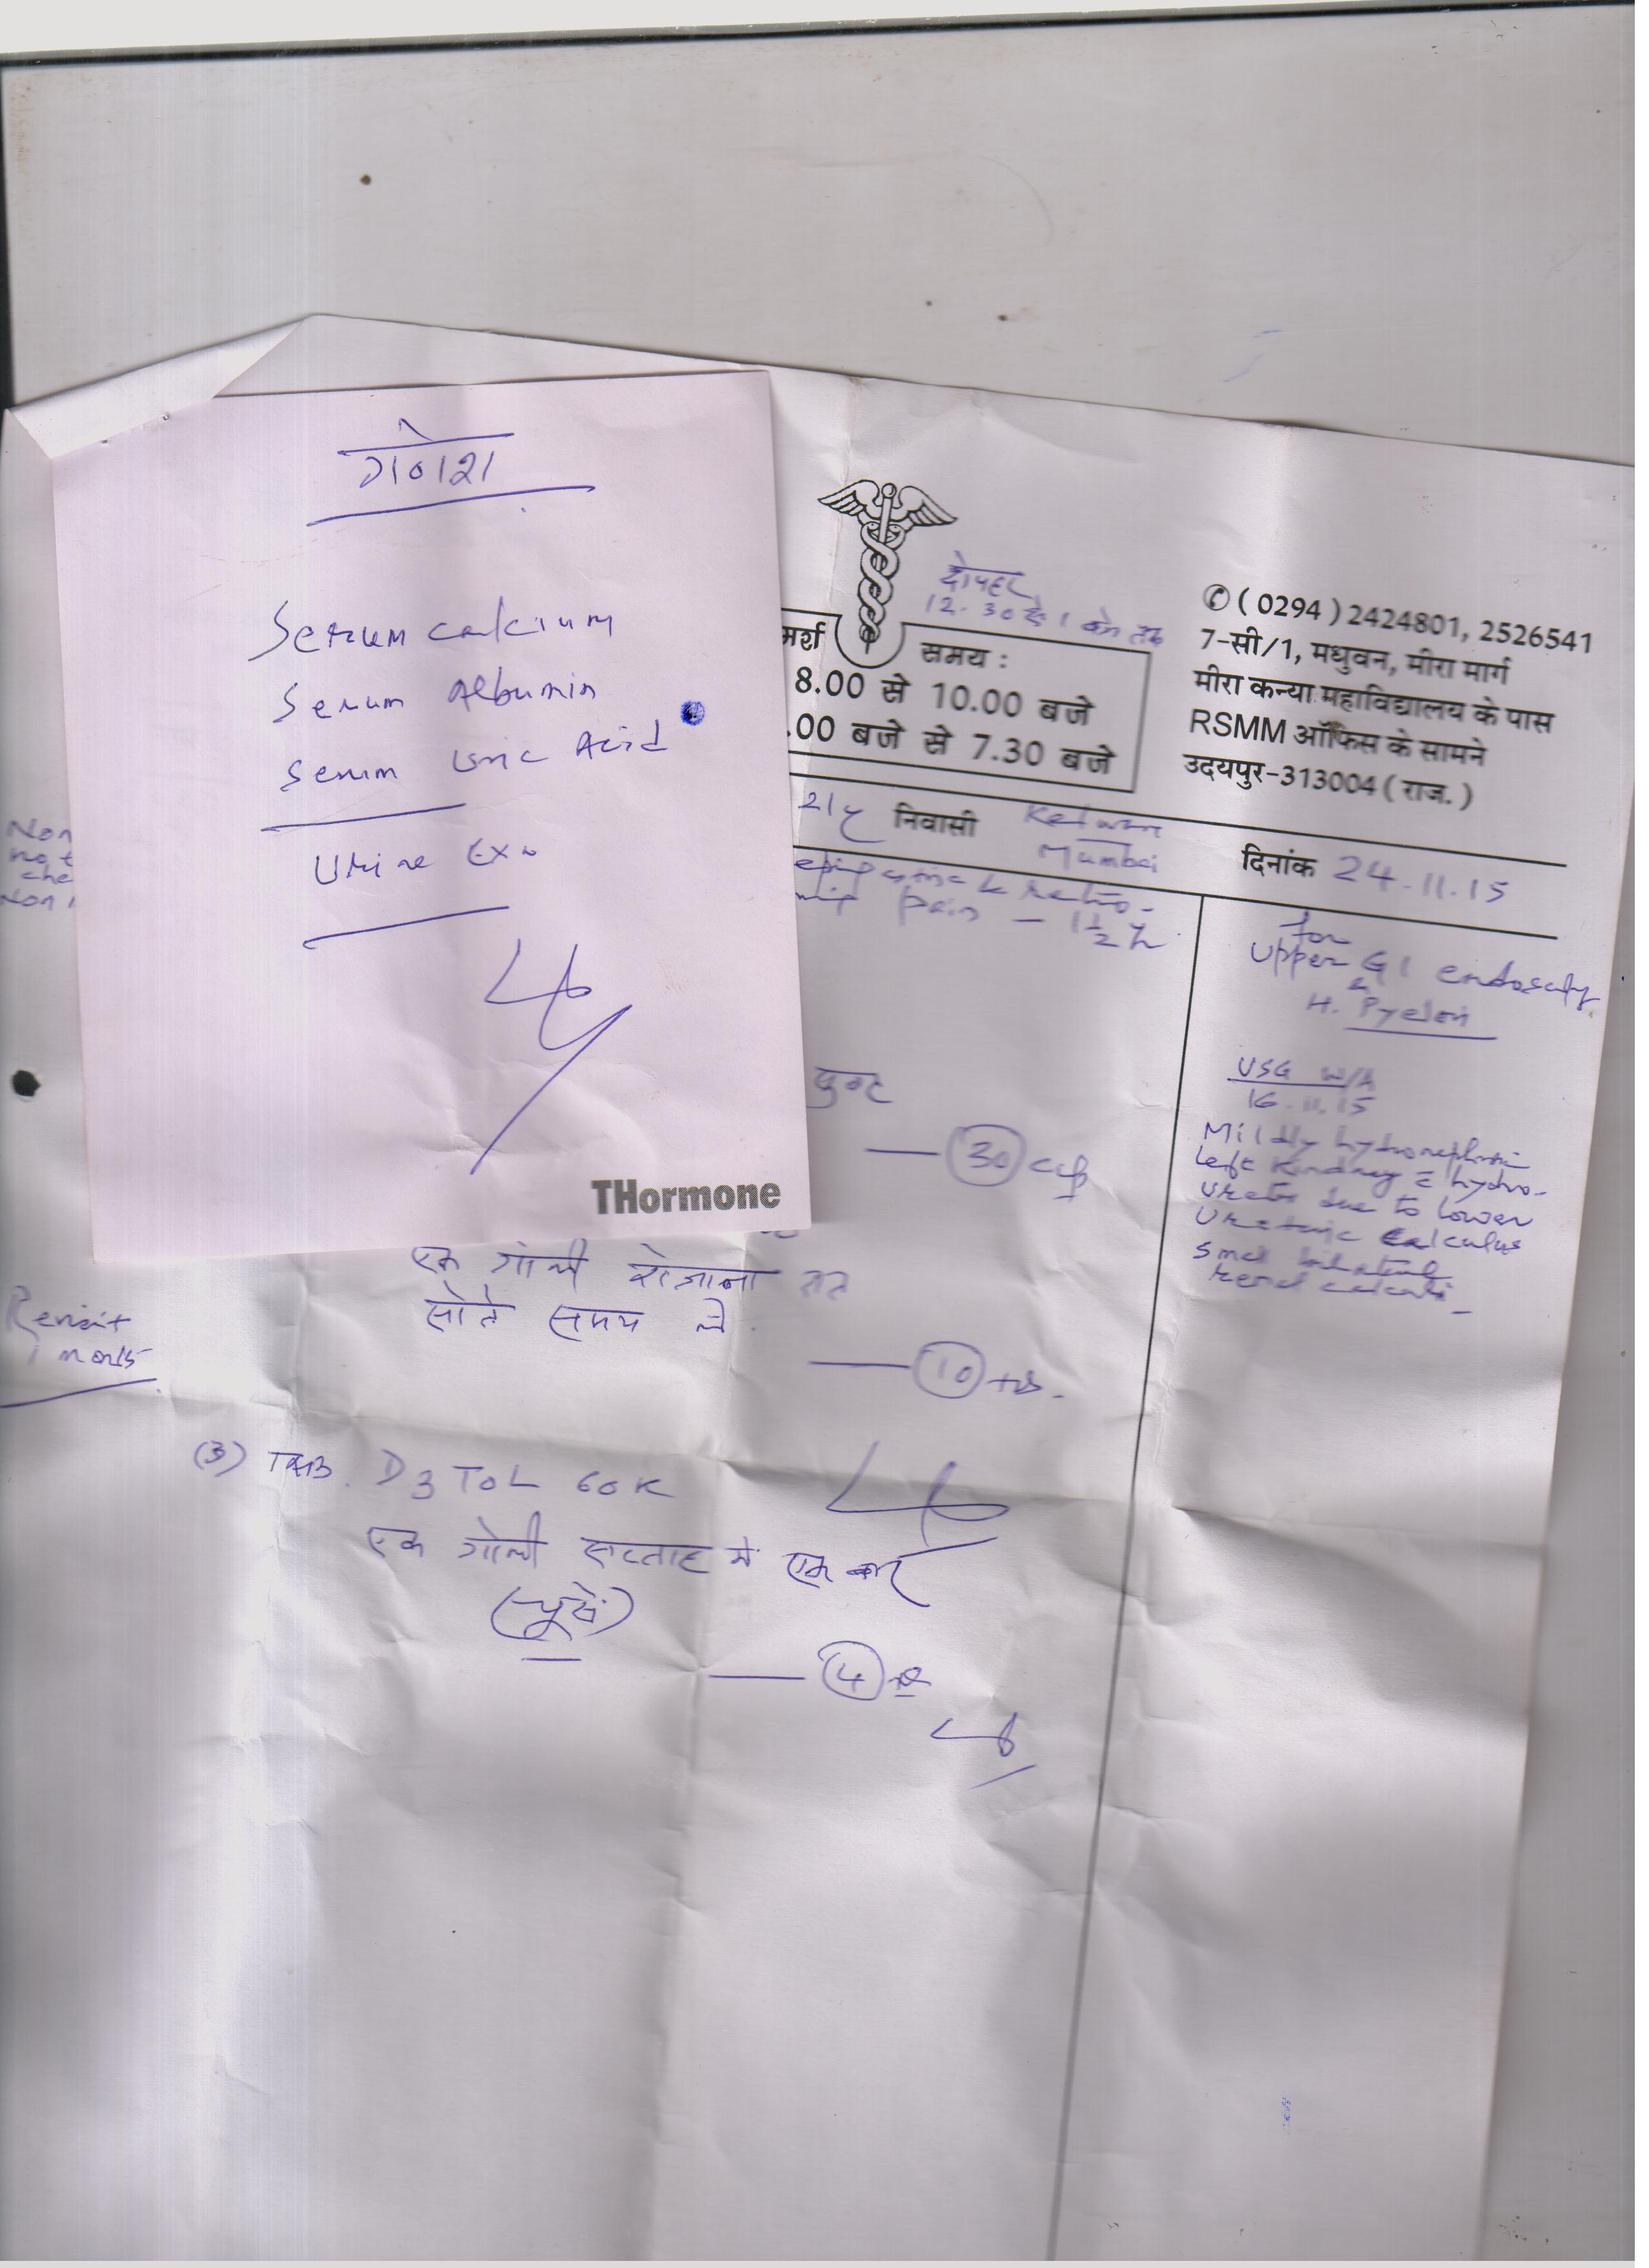 गणेश
Serum calcium
Serum Albumin
Serum Uric Acid
Urine Ex
THormone
दोपहर
12.30 से 1 बजे तक
मर्श
समय :
8.00 से 10.00 बजे
.00 बजे से 7.30 बजे
✆ ( 0294 ) 2424801, 2526541
7-सी/1, मधुवन, मीरा मार्ग
मीरा कन्या महाविद्यालय के पास
RSMM ऑफिस के सामने
उदयपुर-313004 ( राज. )
21y निवासी
Mumbai
दिनांक 24.11.15
epigastric & retro-
pain - 1½ y
Non
not
che
Non
for
Upper GI endoscopy
&
H. Pylori
USG W/A
16.11.15
Mildly hydronephrotic
Left Kindney c hydro-
ureter due to Lower
Ureteric calculus
Small bilateral
renal calculi
30 cap
एक गोली रोजाना रात
सोते समय ले
10 tab.
Revisit
1 month
(3) TAB. D3 TOL 60K
एक गोली सप्ताह में एक बार
(चूसें)
4